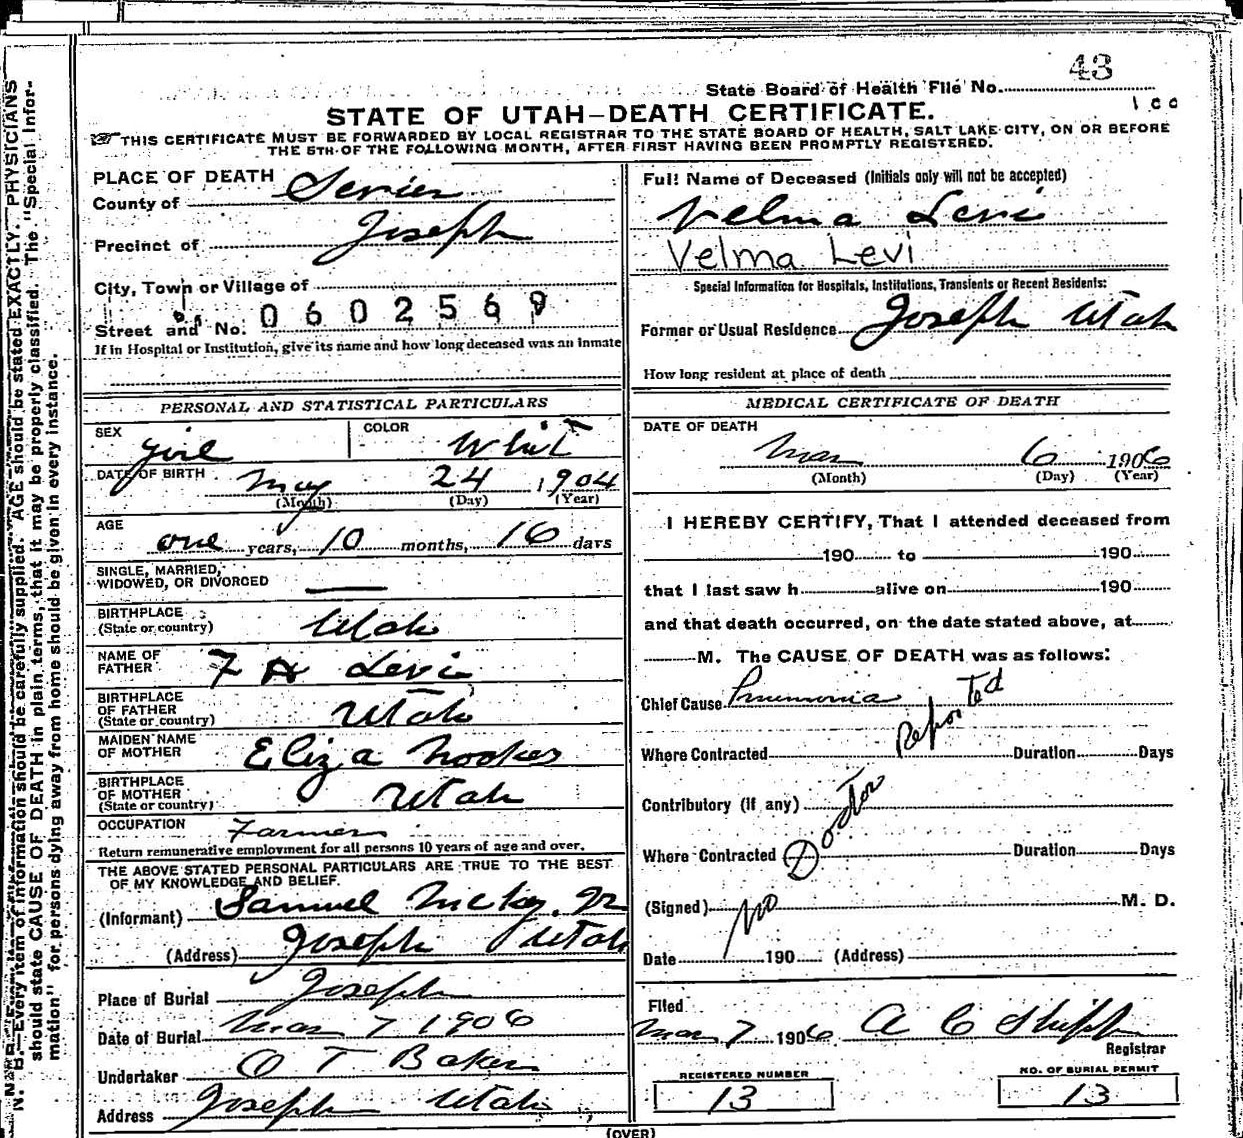 43
State Board of Health File No.
100
STATE OF UTAH—DEATH CERTIFICATE.
THIS CERTIFICATE MUST BE FORWARDED BY LOCAL REGISTRAR TO THE STATE BOARD OF HEALTH, SALT LAKE CITY, ON OR BEFORE
THE 5TH OF THE FOLLOWING MONTH, AFTER FIRST HAVING BEEN PROMPTLY REGISTERED.
PLACE OF DEATH
County of Sevier
Precinct of Joseph
City, Town or Village of
Street and No. 0602569
If in Hospital or Institution, give its name and how long deceased was an inmate
PERSONAL AND STATISTICAL PARTICULARS
SEX girl COLOR Whit
DATE OF BIRTH May 24 1904
(Month) (Day) (Year)
AGE
one years, 10 months, 16 days
SINGLE, MARRIED,
WIDOWED, OR DIVORCED —
BIRTHPLACE
(State or country) Utah
NAME OF
FATHER F H Levi
BIRTHPLACE
OF FATHER
(State or country) Utah
MAIDEN NAME
OF MOTHER Eliza
BIRTHPLACE
OF MOTHER
(State or country) Utah
OCCUPATION Farmer
Return remunerative employment for all persons 10 years of age and over.
THE ABOVE STATED PERSONAL PARTICULARS ARE TRUE TO THE BEST
OF MY KNOWLEDGE AND BELIEF.
(Informant) Samuel
(Address) Joseph Utah
Place of Burial Joseph
Date of Burial Mar 7 1906
Undertaker O T Baker
Address Joseph Utah
Full Name of Deceased (Initials only will not be accepted)
Velma Levi
Velma Levi
Special Information for Hospitals, Institutions, Transients or Recent Residents:
Former or Usual Residence Joseph Utah
How long resident at place of death
MEDICAL CERTIFICATE OF DEATH
DATE OF DEATH
Mar 6 1906
(Month) (Day) (Year)
I HEREBY CERTIFY, That I attended deceased from
190 to 190
that I last saw h alive on 190
and that death occurred, on the date stated above, at
M. The CAUSE OF DEATH was as follows:
Chief Cause Pneumonia
Where Contracted Duration Days
Contributory (if any)
Where Contracted Duration Days
(Signed) M. D.
No Doctor Reported
Date 190 (Address)
Filed
Mar 7 1906 A C Shipp
Registrar
REGISTERED NUMBER
13
NO. OF BURIAL PERMIT
13
(OVER)
N. B.—Every item of information should be carefully supplied. AGE should be stated EXACTLY. PHYSICIANS
should state CAUSE OF DEATH in plain terms, that it may be properly classified. The "Special Infor-
mation" for persons dying away from home should be given in every instance.